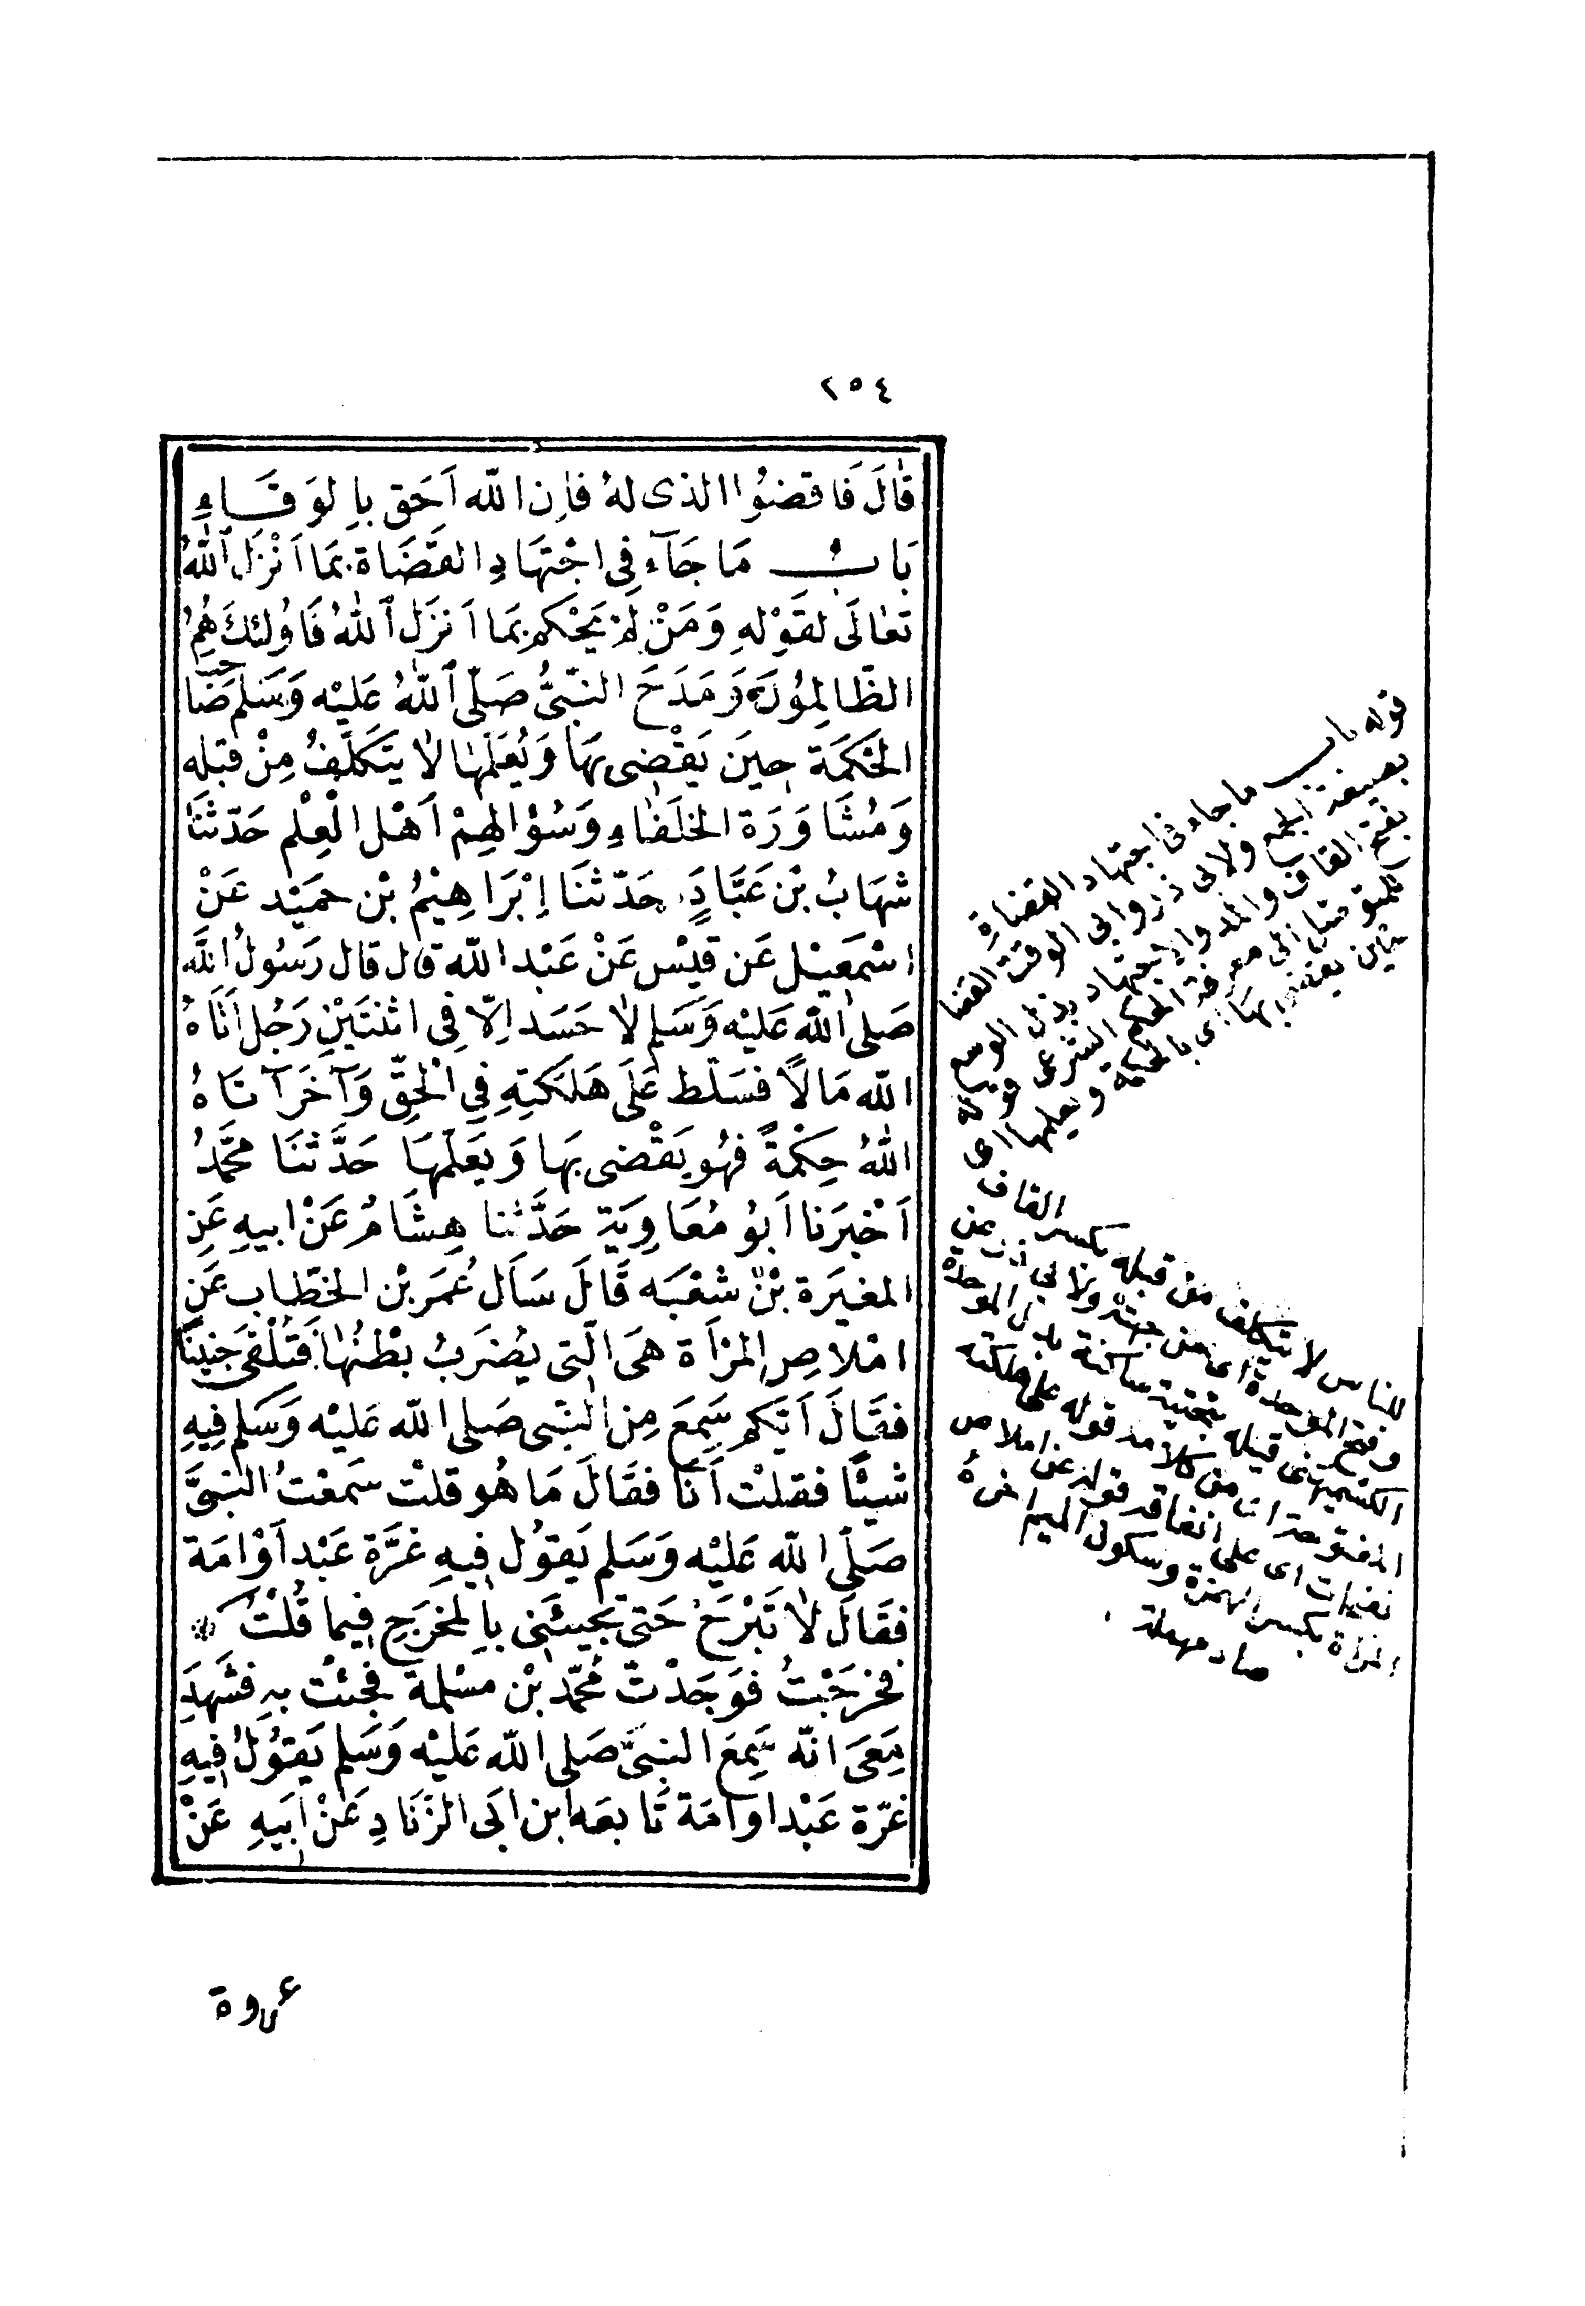 ٢٥٤
قَالَ فَاقضُوا الذى لهُ فاِن الله اَحَق باِلوَفَاءِ
بَابُ مَا جَآء فِى اجْتهَادِ القَضَاة بمَا اَنْزَلَ اللهُ
تعَالَى لقَوْلهِ وَمَنْ لمْ يَحْكم بمَا اَنزَلَ اللهُ فَاُولئكَ هُمُ
الظَّالِمُونَ وَمَدَحَ النبىُّ صَلَّى اللهُ عَليْه وَسَلم صَاحبَ
الحَكمَة حِينَ يَقْضِى بهَا وَيُعَلمهَا لاَ يتَكَلَّفُ مِنْ قبَله
وَمُشَاوَرَة الخلَفَاءِ وَسُؤالهِمْ اَهْل الْعِلْم حَدّثنَا
شهَابُ بْن عَبَّادٍ حَدّثنَا إِبْرَاهِيْمُ بْن حمَيْد عَنْ
اسْمَعِيْل عَن قيْس عَنْ عَبْد الله قال قال رَسُولُ الله
صَلى الله عَليْه وَسَلم لاَ حَسَد اِلاّ فِى اثنتَيْنِ رَجُل اَتَاهُ
الله مَالاً فسَلّط عَلَى هَلَكَتِهِ فِى الْحَقّ وَآخَر آتَاهُ
اللهُ حِكْمَةً فهُو يَقْضى بهَا وَيعَلّمهَا حَدَّثنَا محَّمدُ
اَخْبرَنا اَبوُ مُعَاوِيَة حَدَّثنا هِشَامُ عَنْ ابيهِ عَنِ
المغيرَة بْنْ شعْبَه قَالَ سَاَل عُمَر بْن الخطّاب عَنِ
امْلاصِ المرْاَة هىَ الّتِى يُضرَبُ بطْنُهَا فَتُلْقى جَنينًا
فقَالَ اَيّكم سَمِعَ مِنَ النبّى صَلى الله عَليْه وَسَلم فِيهِ
شيئًا فقلتْ اَنَا فقَالَ مَا هُو قلتْ سَمعْتُ النبىَّ
صَلّى الله عَليْه وَسَلم يَقوُل فِيهِ غرَّة عَبْد اَوْ امَة
فقَالَ لاَ تَبْرَحْ حَتى تجيئَنى باِلمخرَجِ فِيمَا قُلْتُ
فخرَجْتُ فوَجَدْتّ مُحَمّد بْن مسْلمة فجئتْ بهِ فشَهدَ
مَعِىَ انّه سَمِعَ النبىَّ صَلى الله عَليْه وَسَلم يَقوُلُ فِيهِ
غرّة عَبْد اوْ امَة تَابعَه ابن ابَى الزّنَادِ عَنْ ابَيهِ عَنْ
قوله باب ما جاء فى اجتهاد القضاة
بصيغة الجمع ولابى ذر وابى الوقت القضا
بفتح القاف والمد والاجتهاد بذل الوسع
للتوصل الى معرفة الحكم الشرعى قوله
حين يقضى بها اى بالحكمة ويعلمها اى
للناس لا يتكلف من قبله بكسر القاف
وفتح الموحدة اى من جهته ولابى ذر عن
الكشميهنى قيله بتحتية ساكنة بدل الموحدة
المفتوحة اى من كلامه قوله على هلكته
بفتحات اى على انفاقه قوله عن املاص
المراة بكسر الهمزة وسكون الميم اخره
صاد مهملة .
عروة